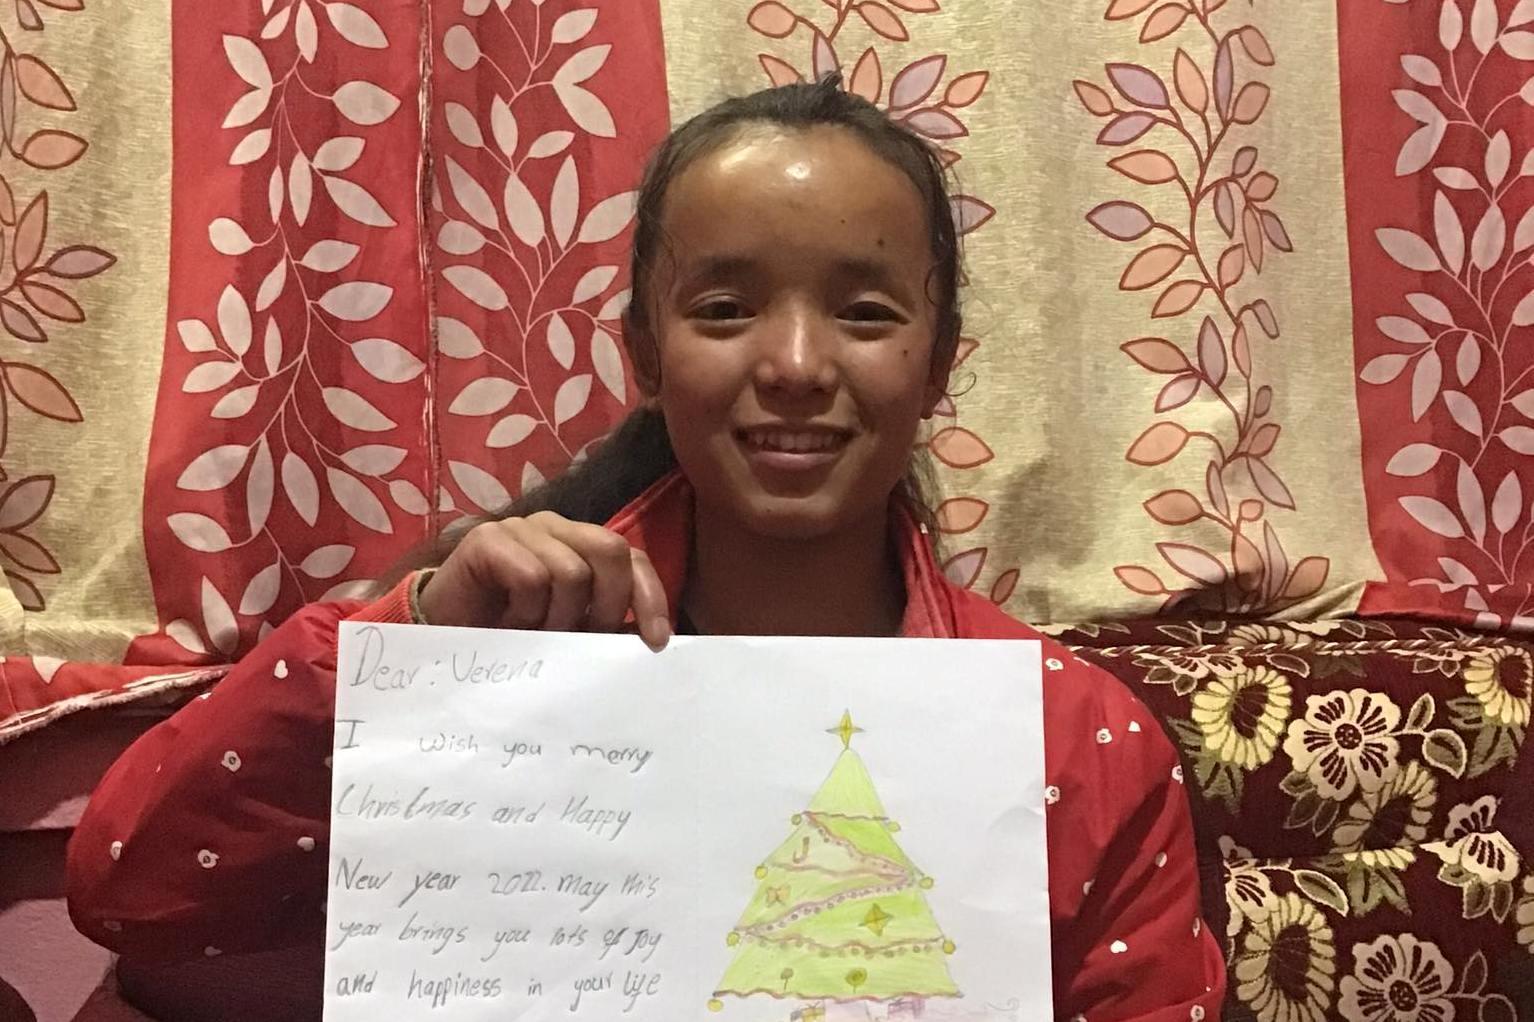 Dear : Verena
I wish you merry
Christmas and Happy
New year 2022. may this
year brings you lots of joy
and happiness in your life